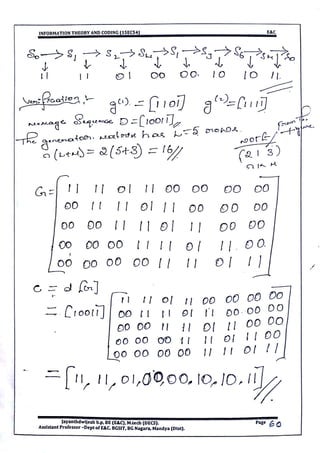 INFORMATION THEORY AND CODING (15EC54) E&C
S0 → S1 → S2 → S4 → S1 → S3 → S6 → S4 → S0
11 11 01 00 00 10 10 11
Verification :-
g(1) = [1101] g(2) = [1111]
message Sequence D = [10011]
The generator matrix has L=5 rows.
n(L+M) = 2(5+3) = 16
(2 1 3)
n k M
G = [11 11 01 11 00 00 00 00
00 11 11 01 11 00 00 00
00 00 11 11 01 11 00 00
00 00 00 11 11 01 11 00
00 00 00 00 11 11 01 11]
C = d [G]
= [10011] [11 11 01 11 00 00 00 00
00 11 11 01 11 00 00 00
00 00 11 11 01 11 00 00
00 00 00 11 11 01 11 00
00 00 00 00 11 11 01 11]
= [11, 11, 01, 00, 00, 10, 10, 11]
Jayanthdwijesh h.p, BE (E&C), M.tech (DECE).
Assistant Professor –Dept of E&C, BGSIT, BG Nagara, Mandya (Dist).
Page 60